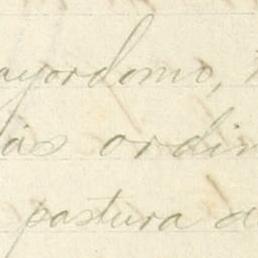 ayordomo,
ás ordin
pastura a